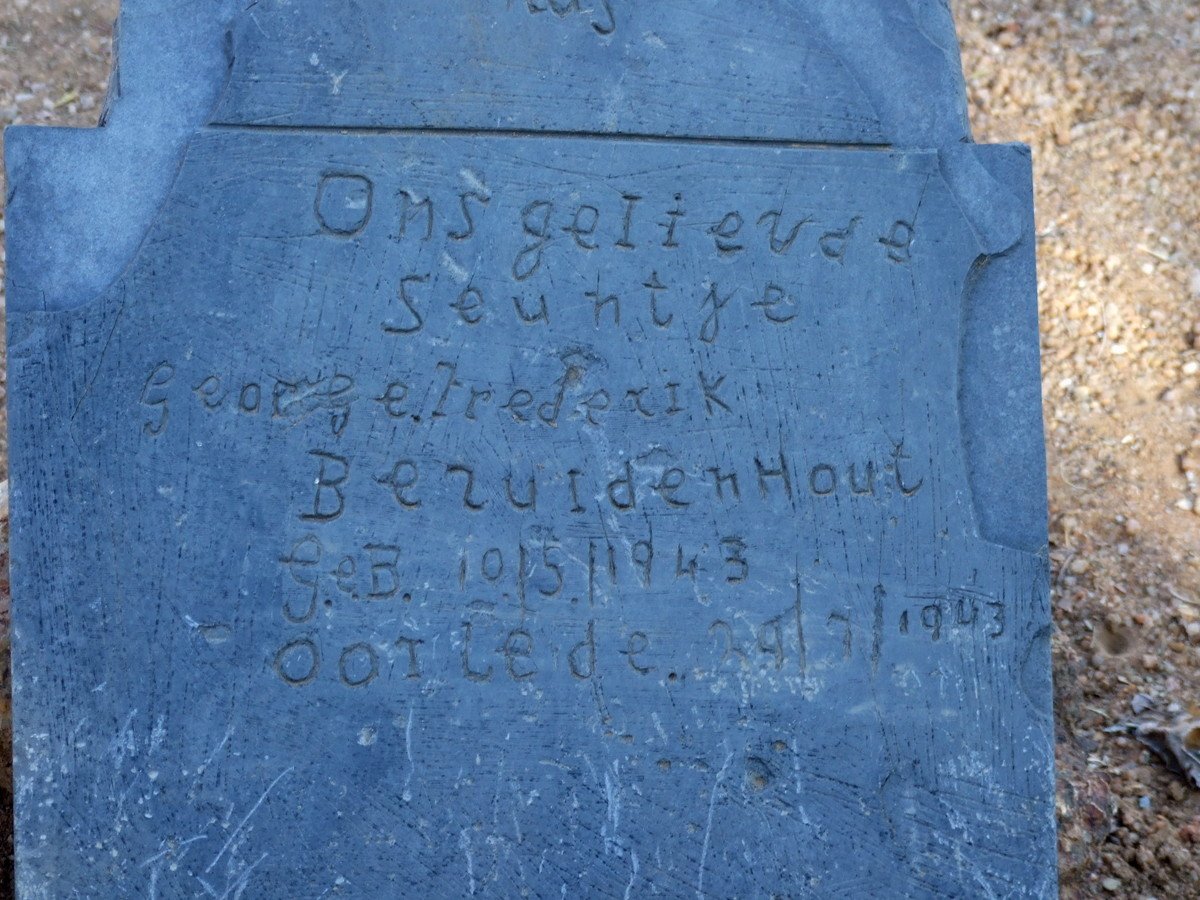 Ons gelievde
Seuntje
George Frederik
BezuidenHout
GeB. 10/5/1943
Oorlede. 29/7/1943